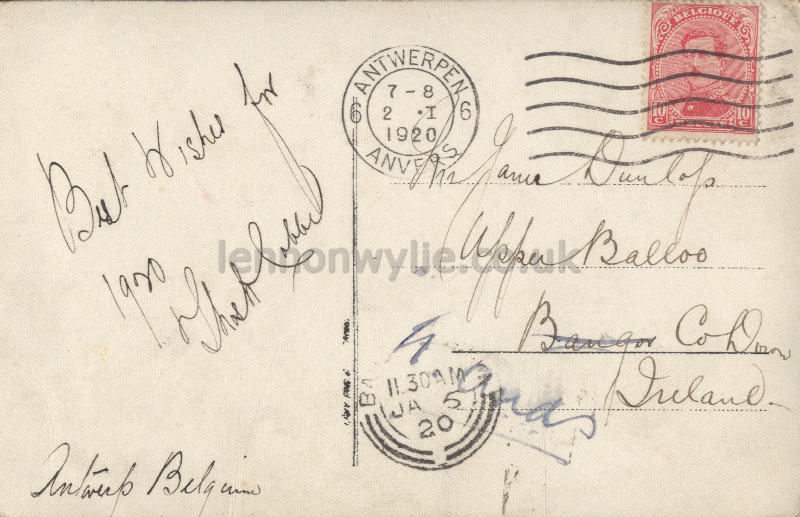 Best Wishes for
1920
Antwerp Belgium
ANTWERPEN
6 6
7-8
2 . I
1920
ANVERS
BELGIQUE
10c 10c
Mr Jame Dunlop
Upper Balloo
Bangor Co Down
Ireland
lennonwylie.co.uk
BA
11.30AM
JA 5
20